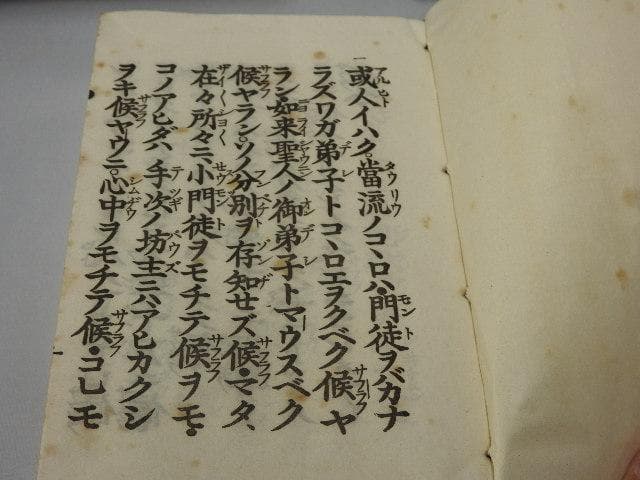 一
或人イハク當流ノコヽロハ門徒ヲバカナ
ラズワガ弟子トコヽロエヲクベク候ヤ
ラン如来聖人ノ御弟子トマウスベク
候ヤランソノ分別ヲ存知セズ候マタ、
在々所々ニ小門徒ヲモチテ候ヲモ・
コノアヒダハ手次ノ坊主ニハアヒカクシ
ヲキ候ヤウニ心中ヲモチテ候・コレモ